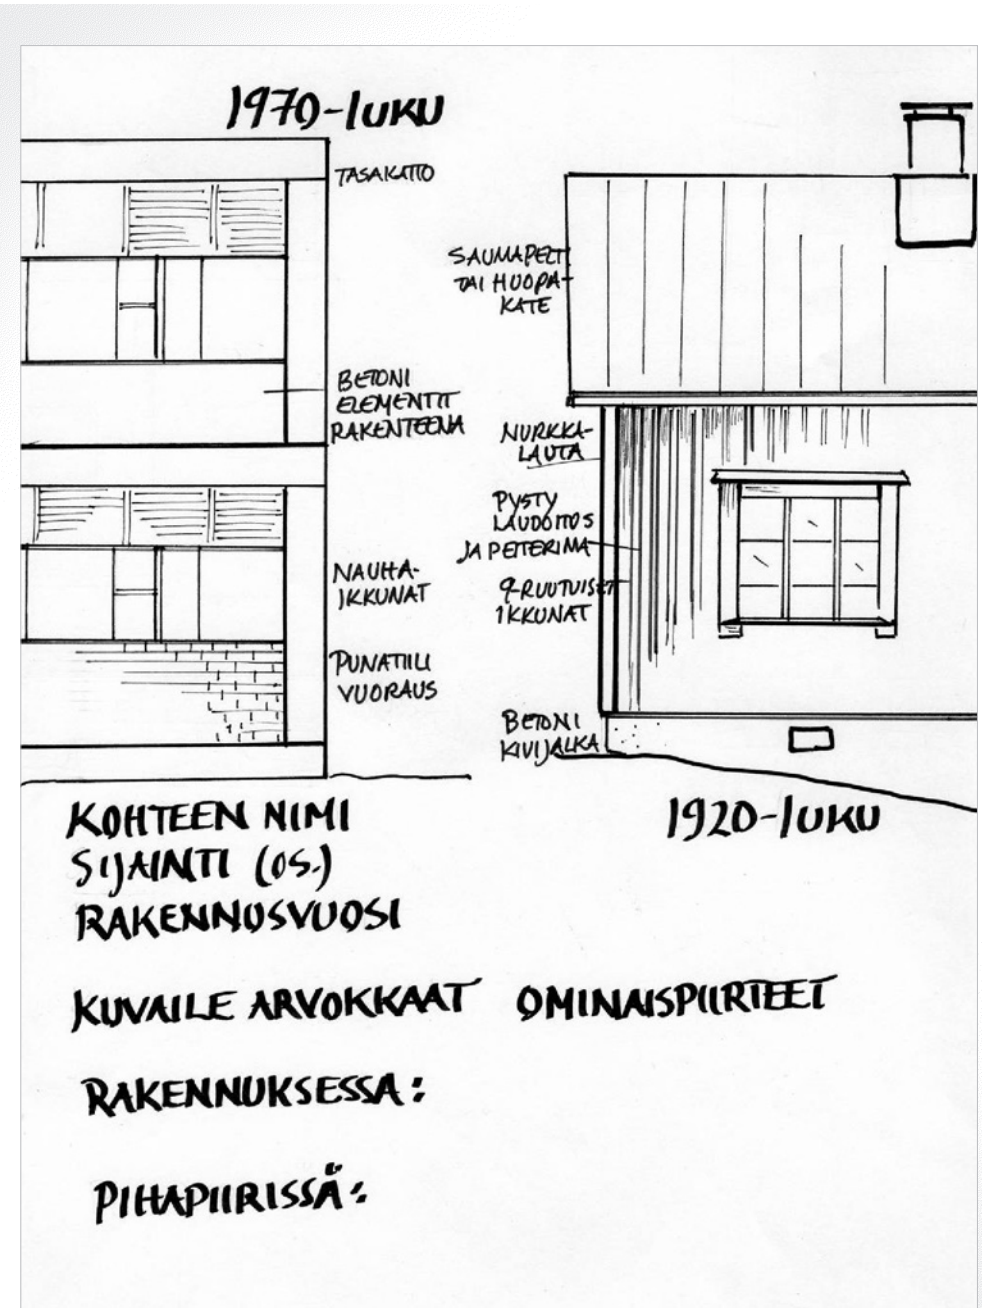 1970-luku
TASAKATTO
BETONI
ELEMENTIT
RAKENTEENA
NAUHA-
IKKUNAT
PUNATIILI
VUORAUS
SAUMAPELTI
TAI HUOPA-
KATE
NURKKA-
LAUTA
PYSTY
LAUDOITUS
JA PEITERIMA
9-RUUTUISET
IKKUNAT
BETONI
KIVIJALKA
1920-luku
KOHTEEN NIMI
SIJAINTI (OS.)
RAKENNUSVUOSI
KUVAILE ARVOKKAAT OMINAISPIIRTEET
RAKENNUKSESSA:
PIHAPIIRISSÄ: